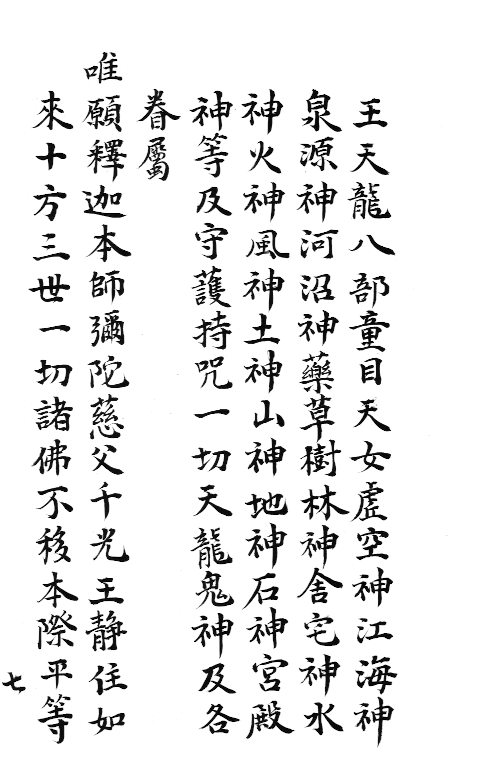 王天龍八部童目天女虛空神江海神
泉源神河沼神藥草樹林神舍宅神水
神火神風神土神山神地神石神宮殿
神等及守護持咒一切天龍鬼神及各
眷屬
唯願釋迦本師彌陀慈父千光王靜住如
來十方三世一切諸佛不移本際平等
七